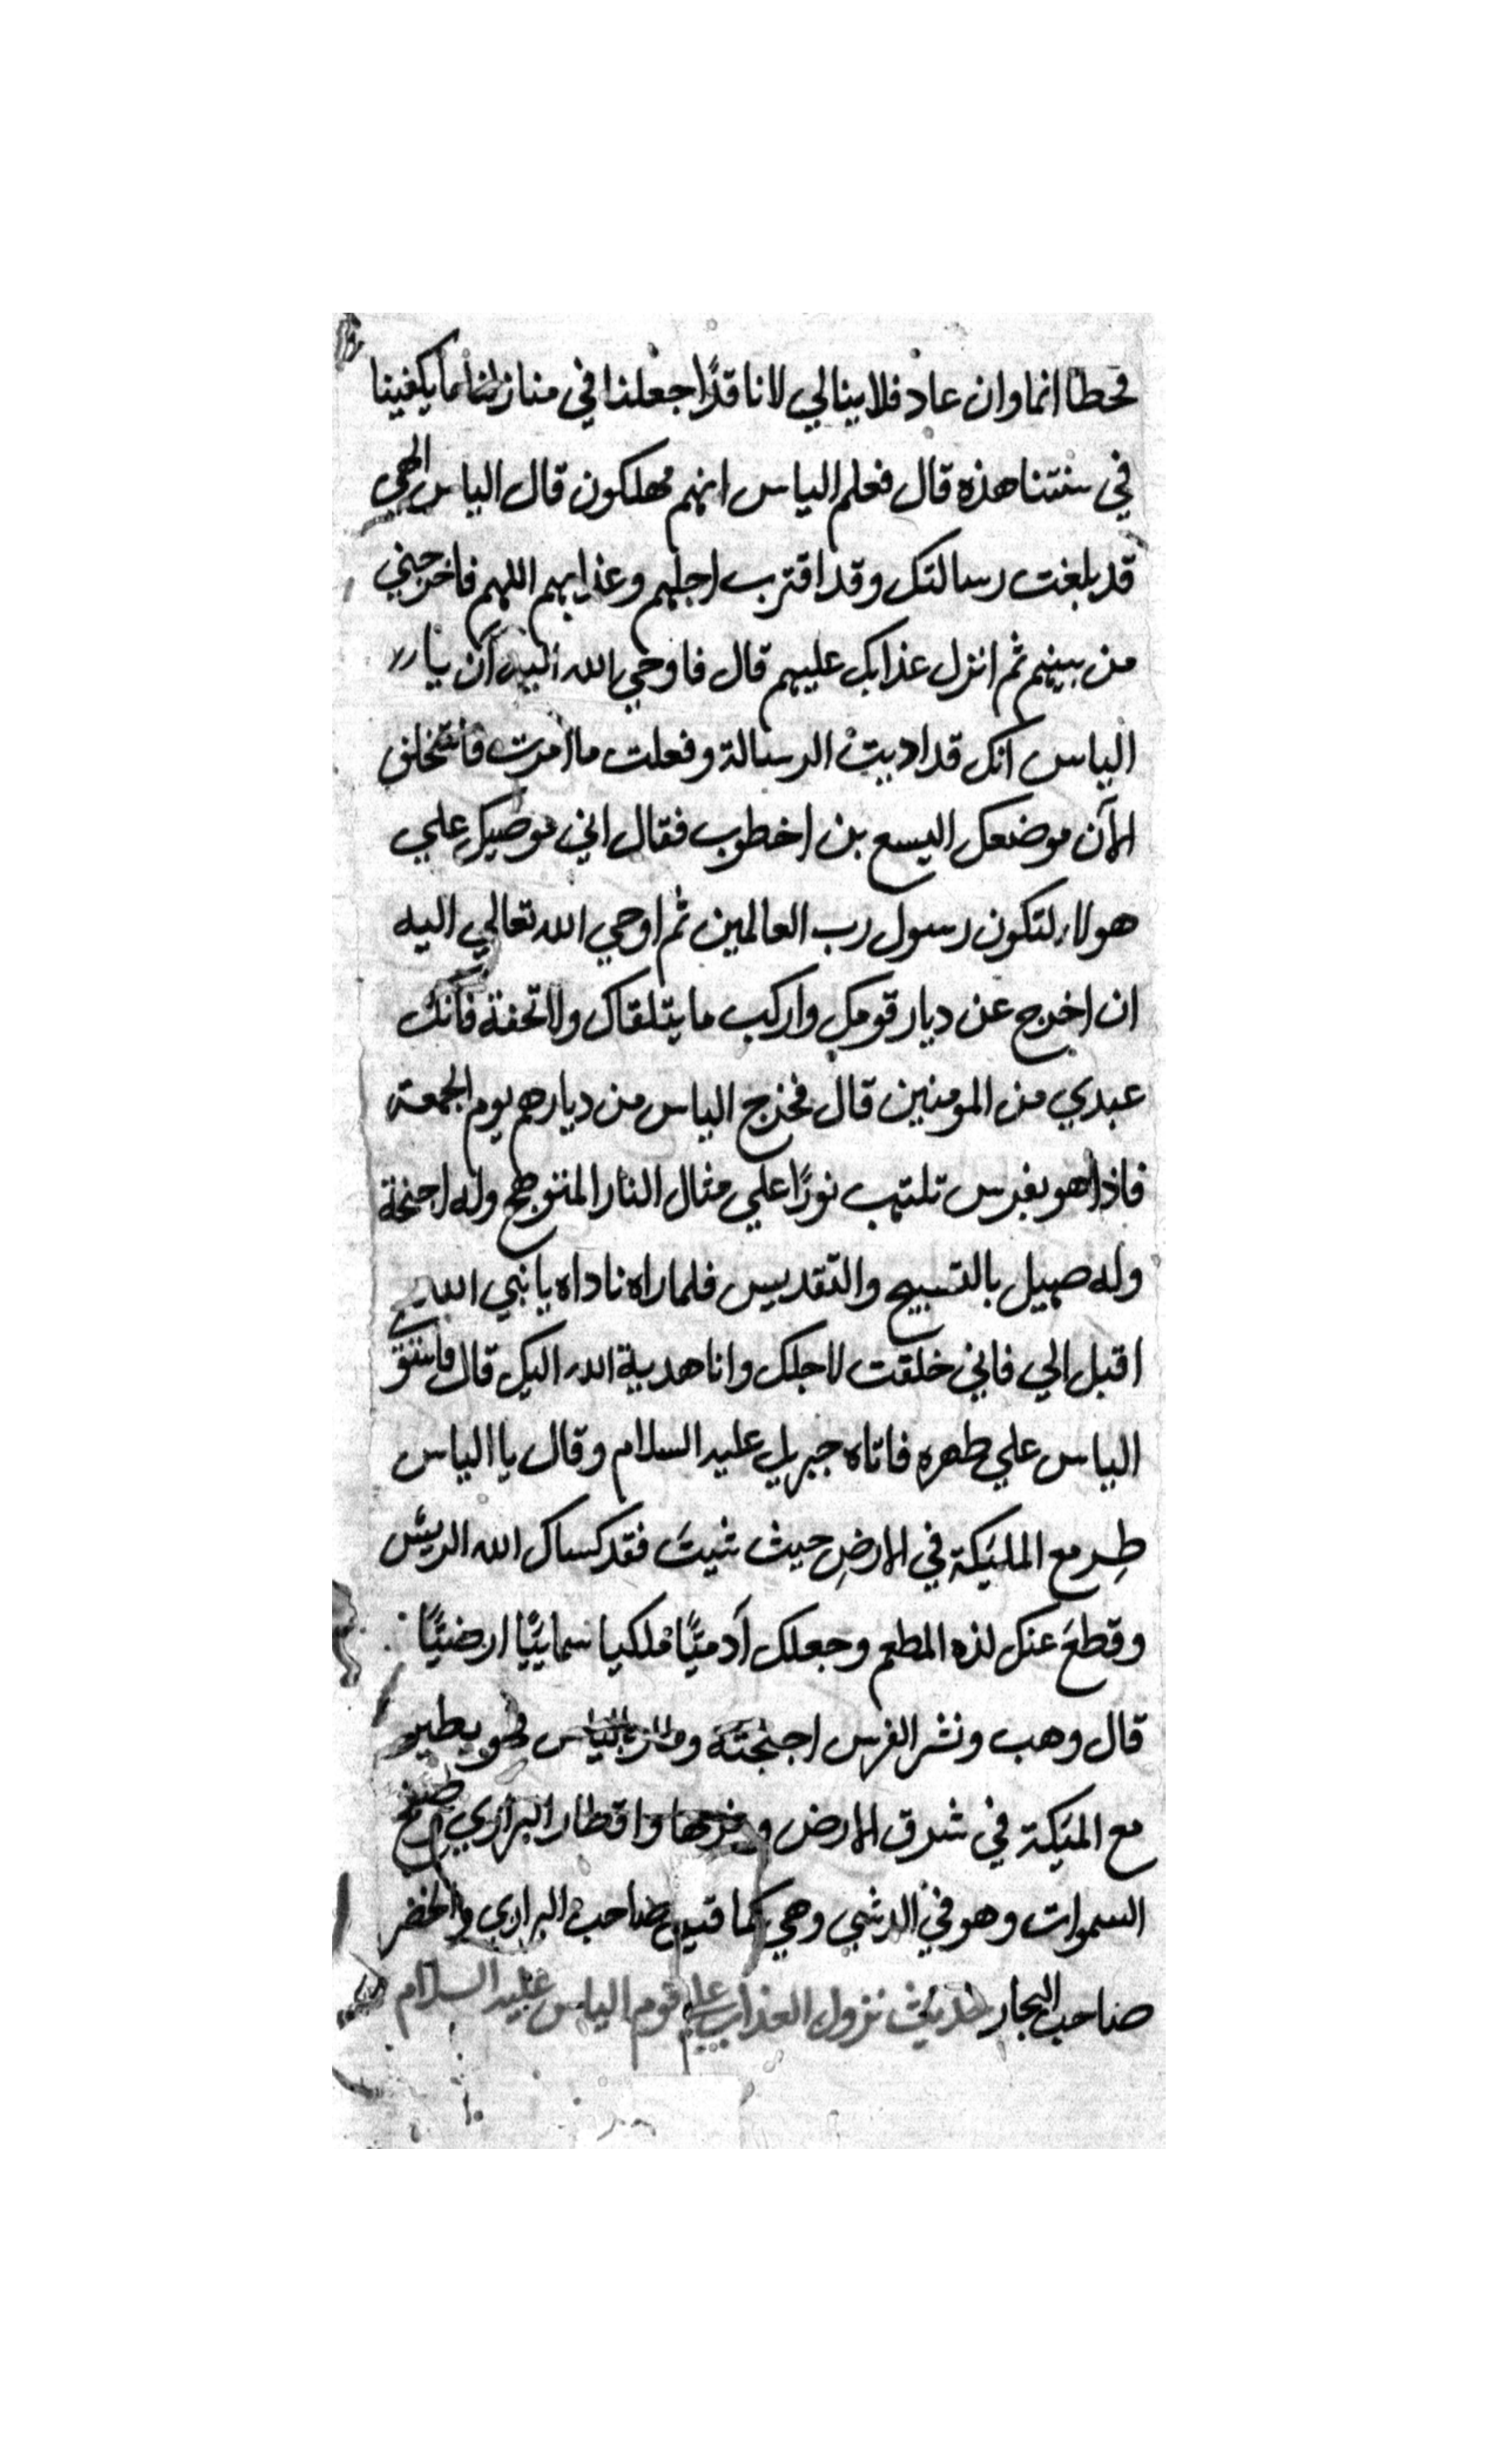 قحطا انما وان عاد فلا ينالي لانا قدا جعلنا في منازلنا ما يكفينا
في سنتنا هذه قال فعلم الياس انهم مهلكون قال الياس الهي
قد بلغت رسالتك وقد اقترب اجلهم وعذابهم اللهم فاخرجني
من بينهم ثم انزل عذابك عليهم قال فاوحي الله اليه ان يا
الياس انك قد اديت الرسالة وفعلت ما امرت فاستخلف
الآن موضعك اليسع بن اخطوب فقال اني موصيك علي
هولاء لتكون رسول رب العالمين ثم اوحي الله تعالي اليه
ان اخرج عن ديار قومك واركب ما يتلقاك ولا تخفة فانك
عبدي من المومنين قال فخرج الياس من ديارهم يوم الجمعة
فاذا هو بفرس تلتهب نورًا علي مثال النار المتوهج وله اجنحة
وله صهيل بالتسبيح والتقديس فلما راه ناداه يا نبي الله
اقبل الي فاني خلقت لاجلك وانا هدية الله اليك قال فاستوي
الياس علي ظهره فاتاه جبريل عليه السلام وقال يا الياس
طِر مع المليكة في الارضِ حيث شيتَ فقد كساك الله الريش
وقطعَ عنك لذه المطعم وجعلك آدميًّا ملكيا سماييًّا ارضيًّا
قال وهب ونشر الفرس اجنحته ومر بالياس فهو يطير
مع الميكة في شرق الارض وغربها واقطار البراري
السموات وهو في الدنيي وحي كما قيل صاحب البراري والخضر
صاحب البحار حديث نزول العذاب علي قوم الياس عليه السلام